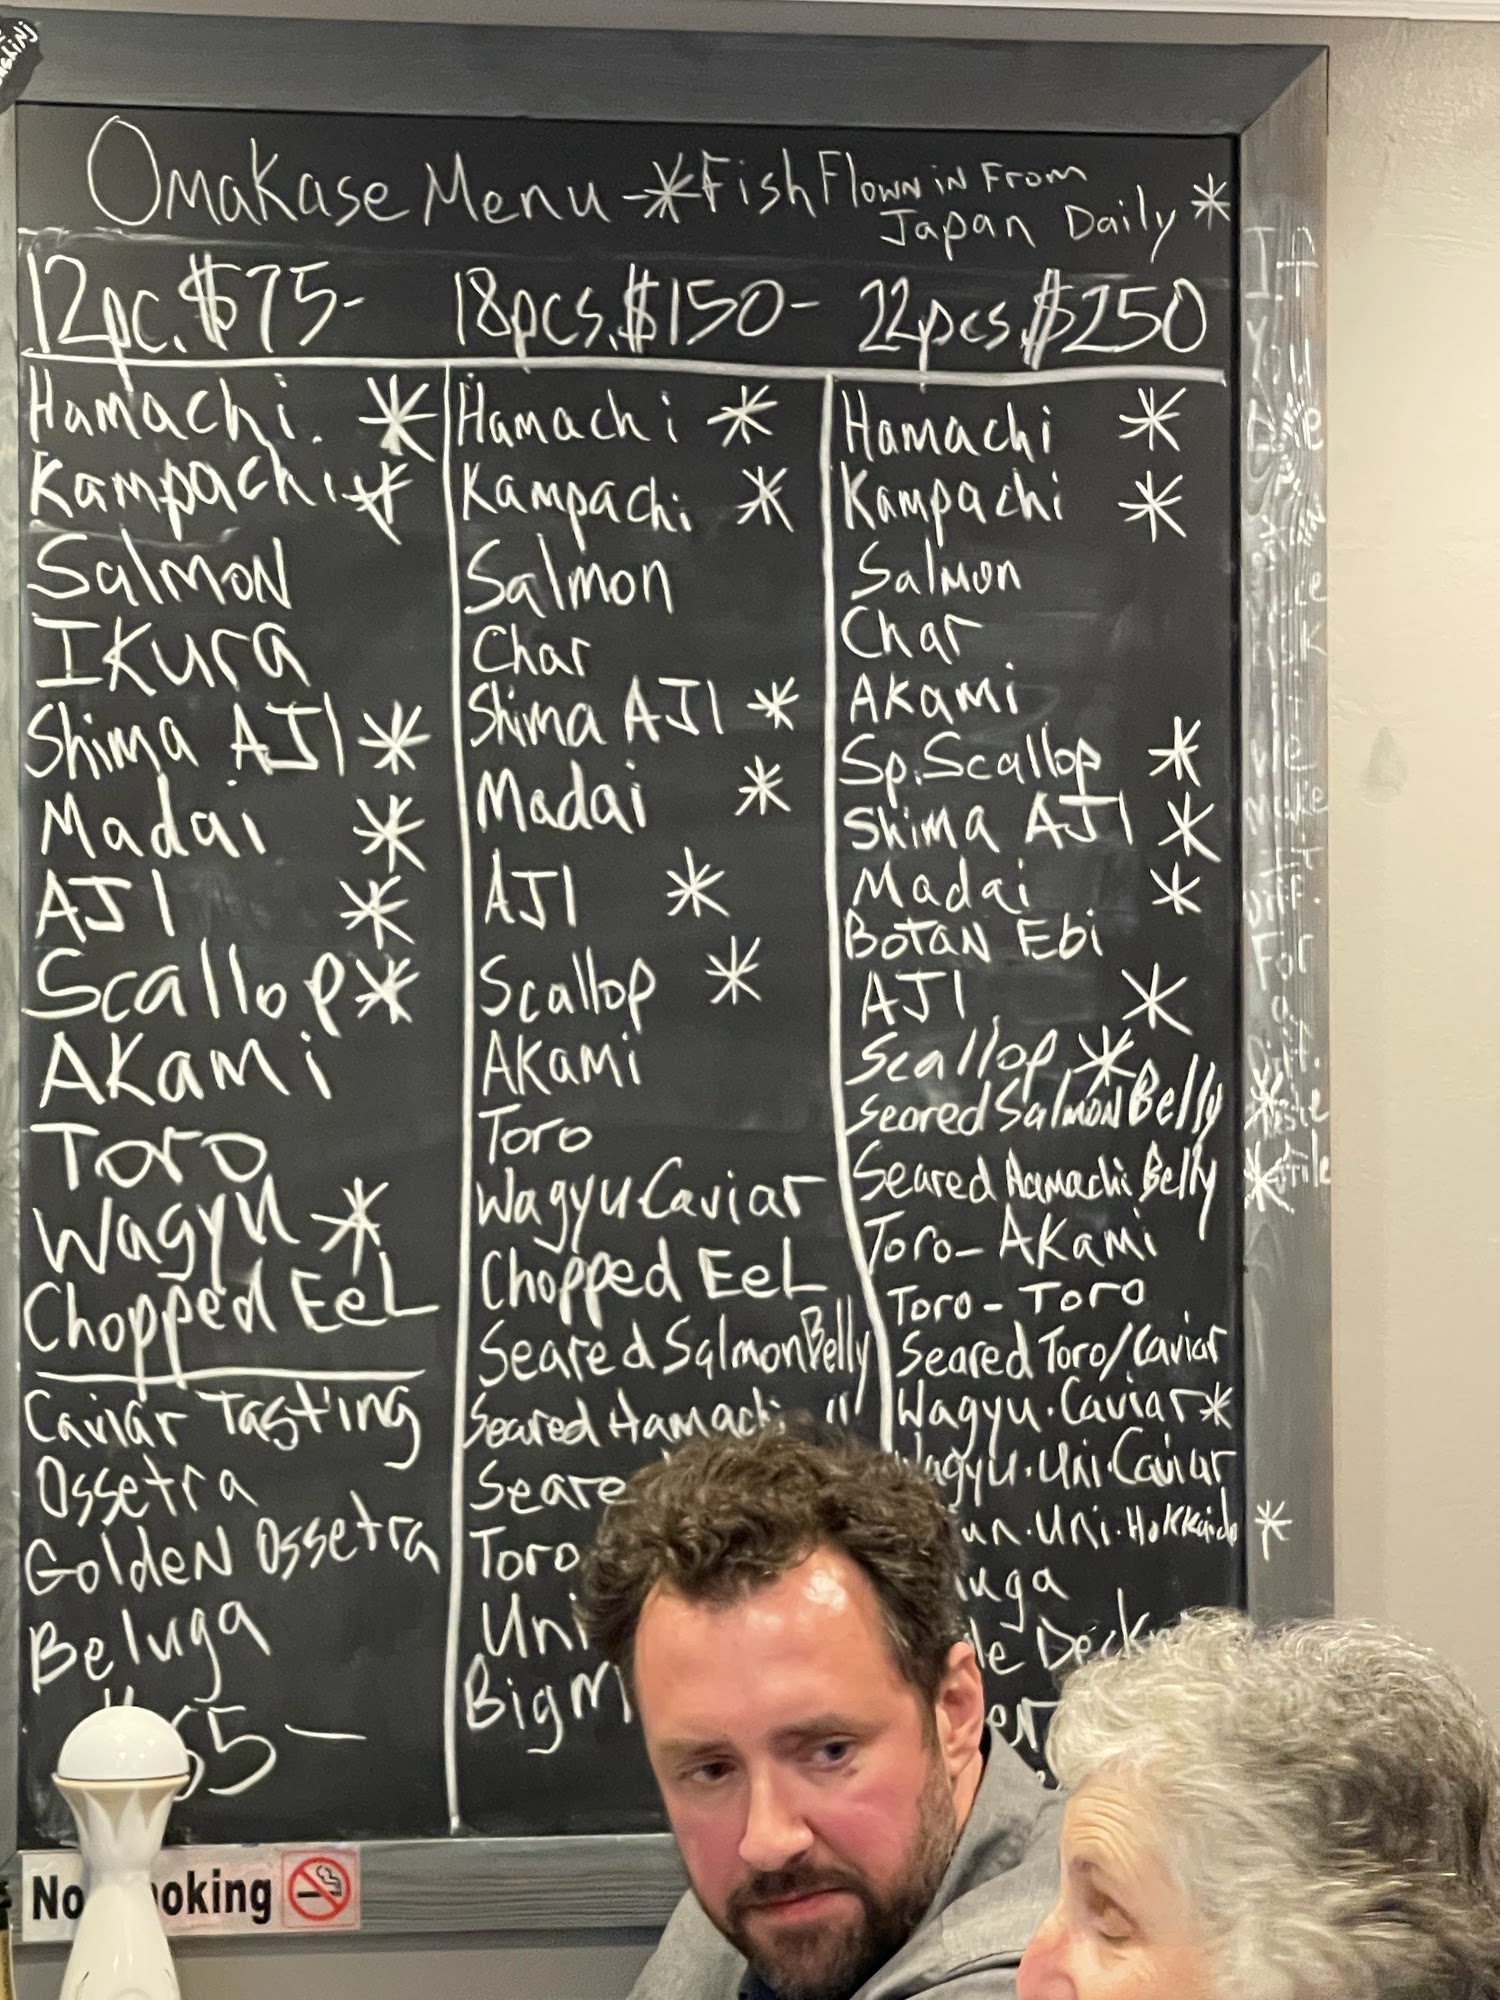 Omakase Menu - *Fish Flown in From
Japan Daily *
12pc. $75-
Hamachi. *
Kampachi *
Salmon
Ikura
Shima AJI *
Madai *
AJI *
Scallop *
Akami
Toro
Wagyu *
Chopped Eel
Caviar Tasting
Ossetra
Golden Ossetra
Beluga
18pcs. $150-
Hamachi *
Kampachi *
Salmon
Char
Shima AJI *
Madai *
AJI *
Scallop *
Akami
Toro
Wagyu Caviar
Chopped Eel
Seared Salmon Belly
Seared Hamachi "
Toro
Uni
Big
22pcs. $250
Hamachi *
Kampachi *
Salmon
Char
Akami
Sp. Scallop *
Shima AJI *
Madai *
Botan Ebi
AJI *
Scallop *
Seared Salmon Belly
Seared Hamachi Belly
Toro - Akami
Toro - Toro
Seared Toro/Caviar
Wagyu . Caviar *
Wagyu . Uni . Caviar
Uni . Hokkaido *
If
You
We
Make
It
For
No